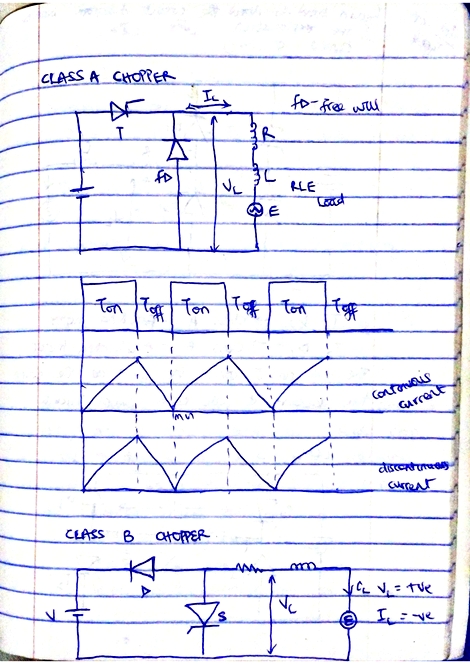 CLASS A CHOPPER
IL
fD - free will
T
R
fD
VL
L
RLE
Load
E
Ton Toff Ton Toff Ton Toff
continuous
current
min
discontinuous
current
CLASS B CHOPPER
D
V
S
VL
CL VL = +ve
E
IL = -ve